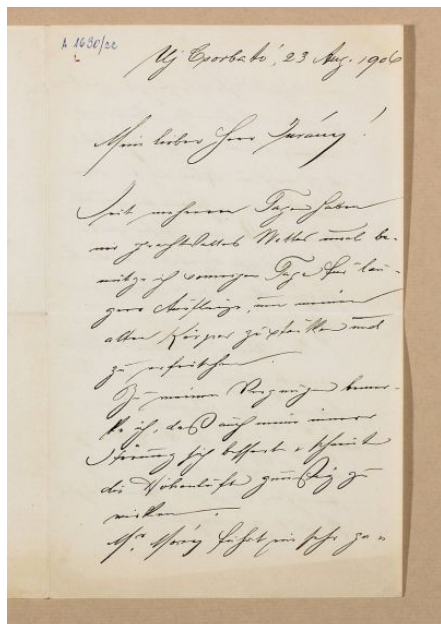 A 1630/22
Uj Csorbató, 23 Aug. 1906
Mein lieber Herr
Seit mehreren Tagen haben
wir prachtvolles Wetter und be-
nütze ich Tage für län-
gere Ausflüge, um meinen
alten Körper zu stärken und
zu erfrischen.
Zu meinem Vergnügen bemer-
ke ich, daß auch meine innere
Stimmung sich bessert & scheint
die Höhenluft günstig zu
wirken.
führt ein sehr